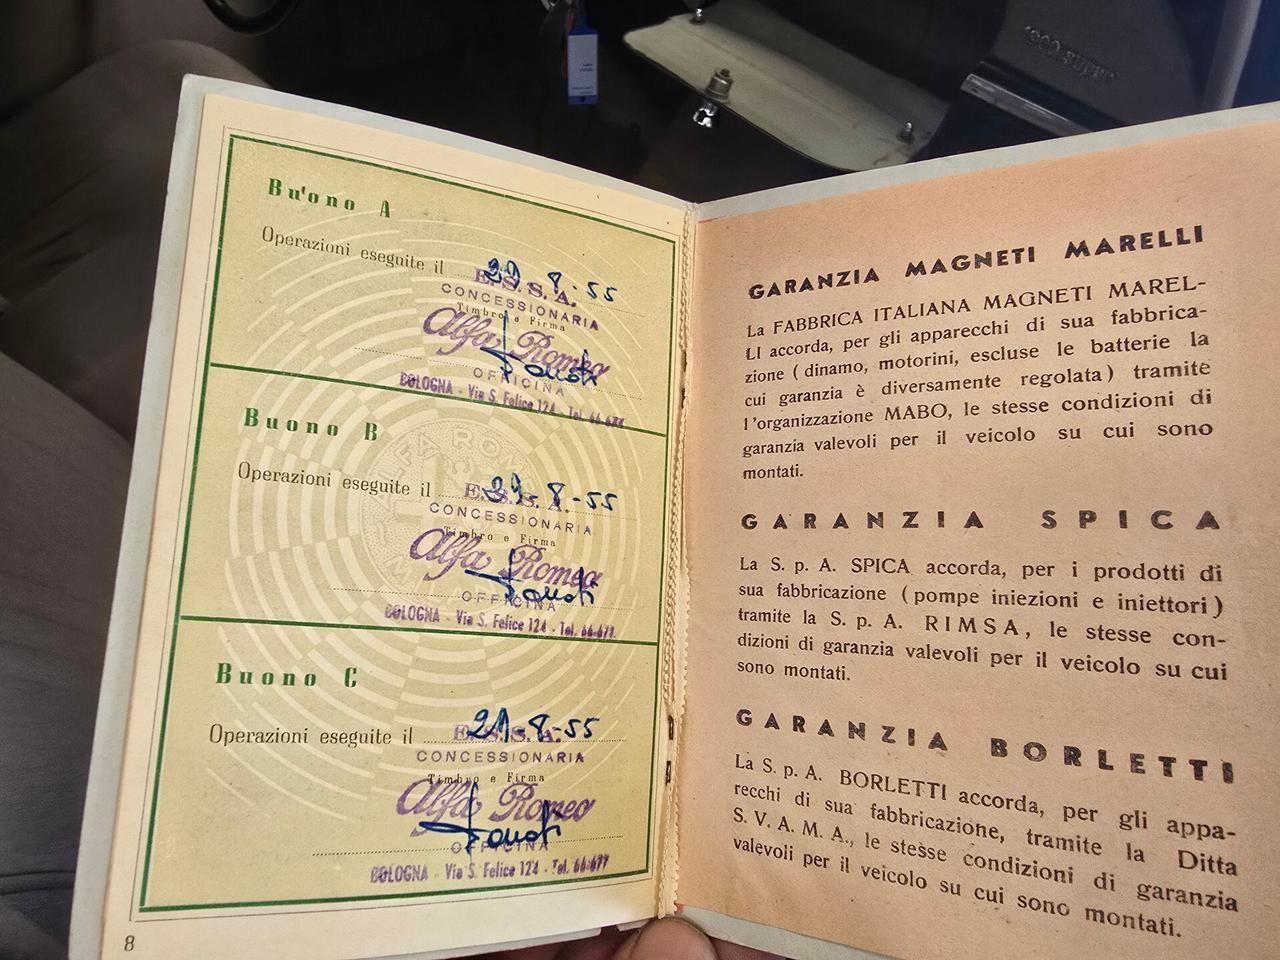 Buono A
Operazioni eseguite il 29-8-55
E.S.S.A.
CONCESSIONARIA
Timbro e Firma
Alfa Romeo
OFFICINA
BOLOGNA - Via S. Felice 124 - Tel. 66-677
Buono B
Operazioni eseguite il 29-8-55
E.S.S.A.
CONCESSIONARIA
Timbro e Firma
Alfa Romeo
OFFICINA
BOLOGNA - Via S. Felice 124 - Tel. 66-677
Buono C
Operazioni eseguite il 29-8-55
E.S.S.A.
CONCESSIONARIA
Timbro e Firma
Alfa Romeo
OFFICINA
BOLOGNA - Via S. Felice 124 - Tel. 66-677
8
GARANZIA MAGNETI MARELLI
La FABBRICA ITALIANA MAGNETI MAREL-
LI accorda, per gli apparecchi di sua fabbrica-
zione ( dinamo, motorini, escluse le batterie la
cui garanzia è diversamente regolata ) tramite
l'organizzazione MABO, le stesse condizioni di
garanzia valevoli per il veicolo su cui sono
montati.
GARANZIA SPICA
La S. p. A. SPICA accorda, per i prodotti di
sua fabbricazione ( pompe iniezioni e iniettori )
tramite la S. p. A. RIMSA, le stesse con-
dizioni di garanzia valevoli per il veicolo su cui
sono montati.
GARANZIA BORLETTI
La S. p. A. BORLETTI accorda, per gli appa-
recchi di sua fabbricazione, tramite la Ditta
S. V. A. M. A., le stesse condizioni di garanzia
valevoli per il veicolo su cui sono montati.
1900 super